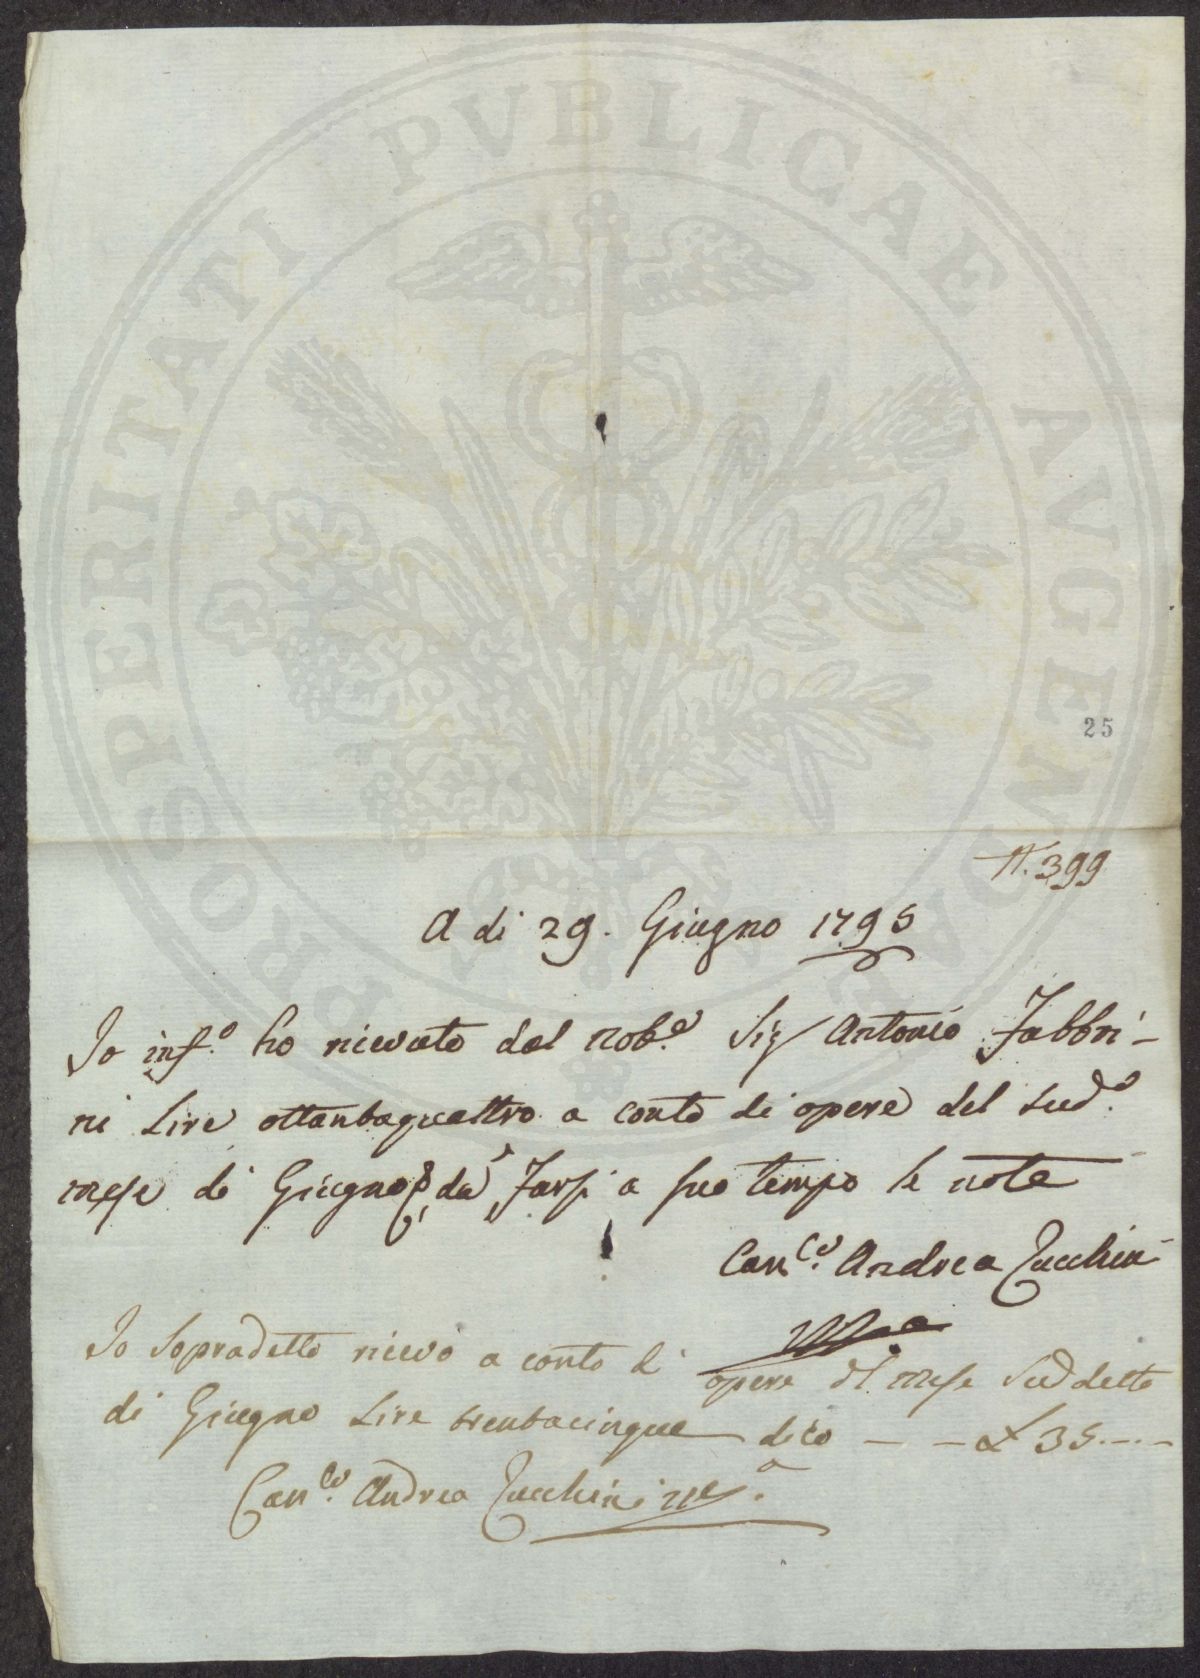 PROSPERITATI PVBLICAE AVGENDAE
25
N. 399
A di 29. Giugno 1795
Io inf.o ho ricevuto dal Nob.e Sig Antonio Fabbri-
ni Lire ottantaquattro a conto di opere del sud.o
mese di Giugno da Farsi a suo tempo le note
Can.co Andrea Zucchini
Io Sopradetto ricevo a conto di opere del mese Suddetto
di Giugno Lire trentacinque dico — — £ 35.—.—
Can.co Andrea Zucchini